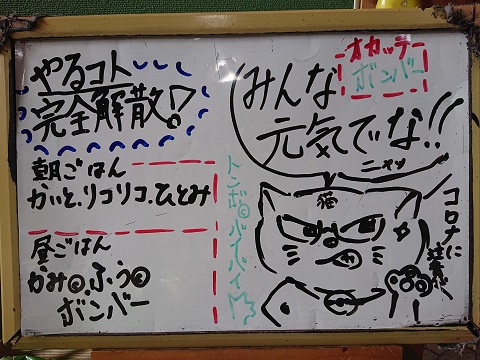 やるコト
完全解散!?
朝ごはん
かいと.リコリコ.ひとみ
昼ごはん
かみ◎.ふう◎
ボンバー
オカッテ
ボンバー
みんな
元気でな!!
ニャッ
トンボ◎バイバイ
猫
コロナに
注意だ